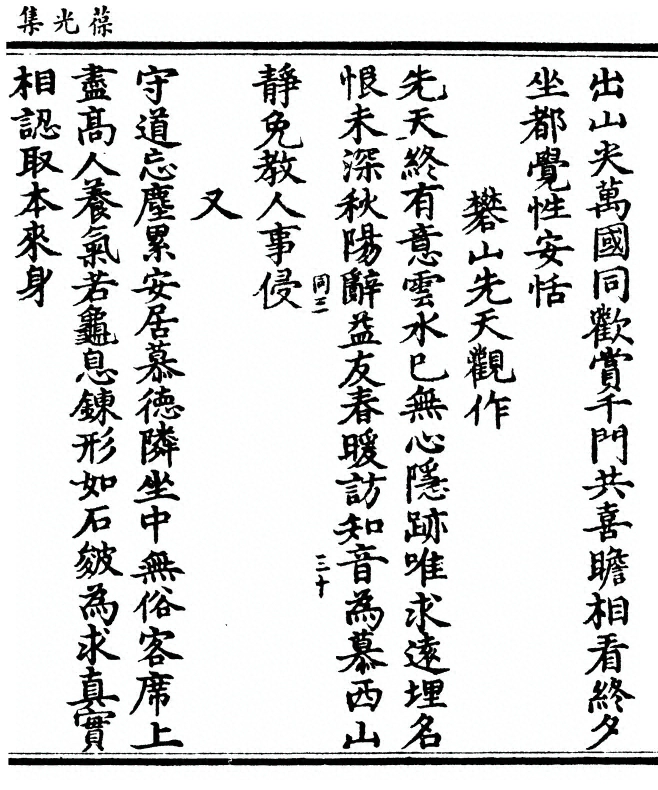 葆光集
出山尖萬國同歡賞千門共喜瞻相看終夕
坐都覺性安恬
礬山先天觀作
先天終有意雲水已無心隱跡唯求遠埋名
恨未深秋陽辭益友春暖訪知音為慕西山
靜免教人事侵
同三
三十
又
守道忘塵累安居慕德隣坐中無俗客席上
盡高人養氣若龜息鍊形如石皴為求真實
相認取本來身